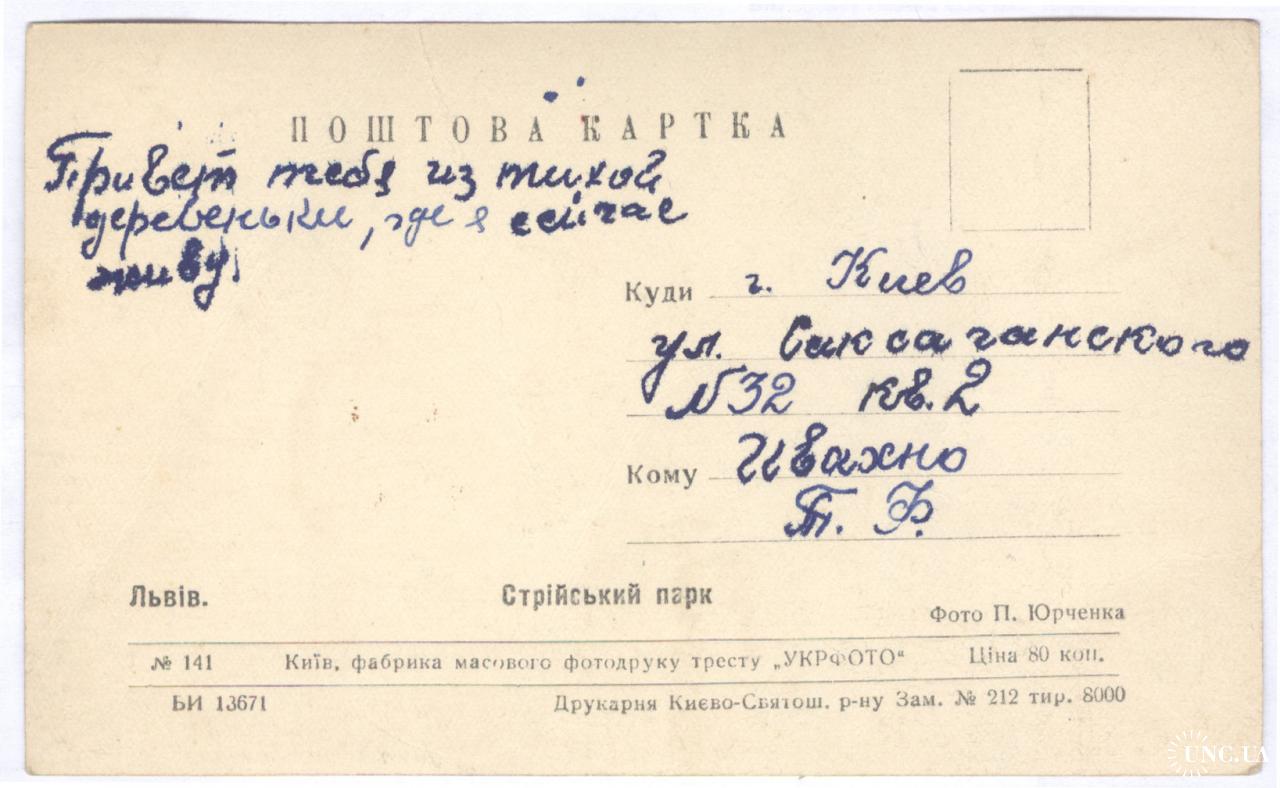 ПОШТОВА КАРТКА
Привет тебе из тихой
деревеньки, где я сейчас
живу.
Куди г. Киев
ул. Саксаганского
№32 кв. 2
Кому Ивахно
Т. Ф.
Львів. Стрійський парк
Фото П. Юрченка
№ 141 Київ, фабрика масового фотодруку тресту „УКРФОТО“ Ціна 80 коп.
БИ 13671 Друкарня Києво-Святош. р-ну Зам. № 212 тир. 8000
UNC.UA